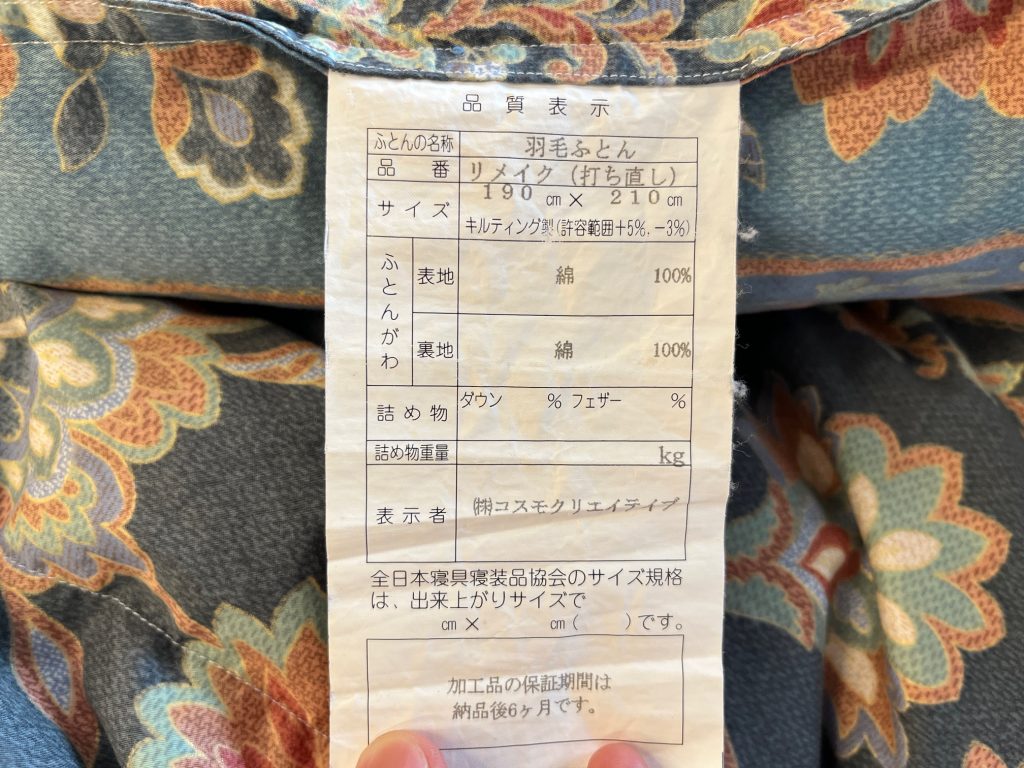 品質表示
ふとんの名称 羽毛ふとん
品番 リメイク（打ち直し）
サイズ 190cm×210cm
キルティング製(許容範囲+5%.-3%)
ふとんがわ 表地 綿 100%
裏地 綿 100%
詰め物 ダウン % フェザー %
詰め物重量 kg
表示者 ㈱コスモクリエイティブ
全日本寝具寝装品協会のサイズ規格
は、出来上がりサイズで
cm× cm( )です。
加工品の保証期間は
納品後6ヶ月です。